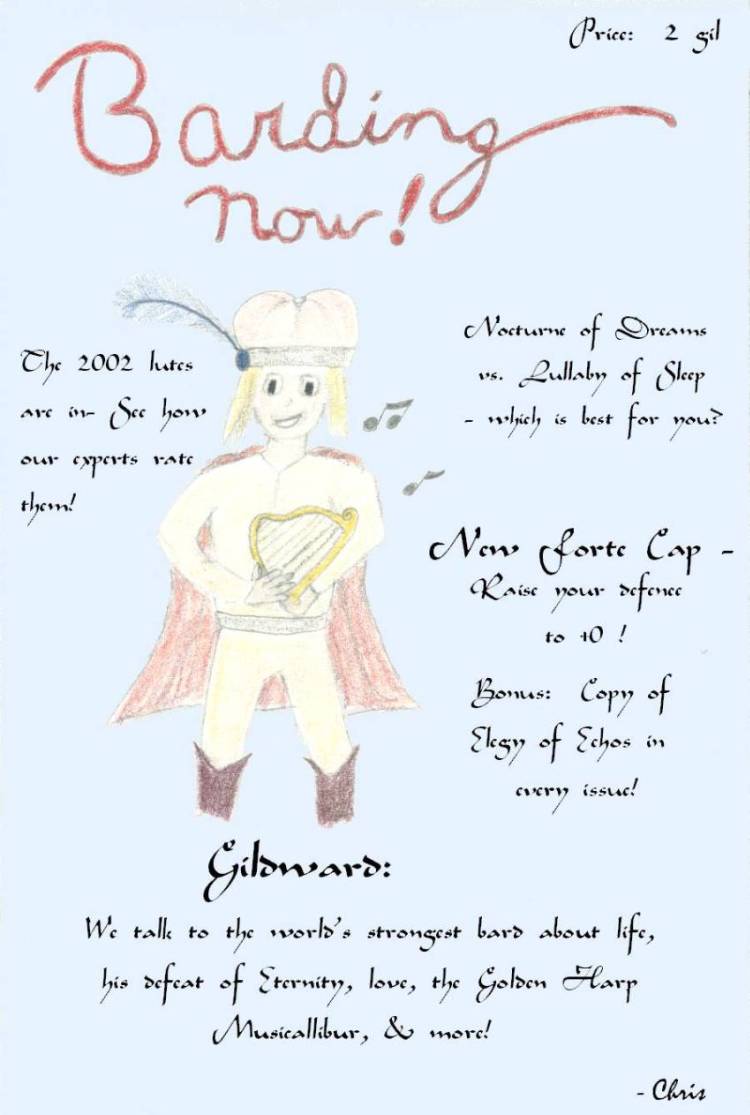 Price: 2 gil
Barding
Now!
The 2002 lutes
are in- See how
our experts rate
them!
Nocturne of Dreams
vs. Lullaby of Sleep
- which is best for you?
New Forte Cap -
Raise your defence
to +0 !
Bonus: Copy of
Elegy of Echos in
every issue!
Gildward:
We talk to the world's strongest bard about life,
his defeat of Eternity, love, the Golden Harp
Musicallibur, & more!
- Chris